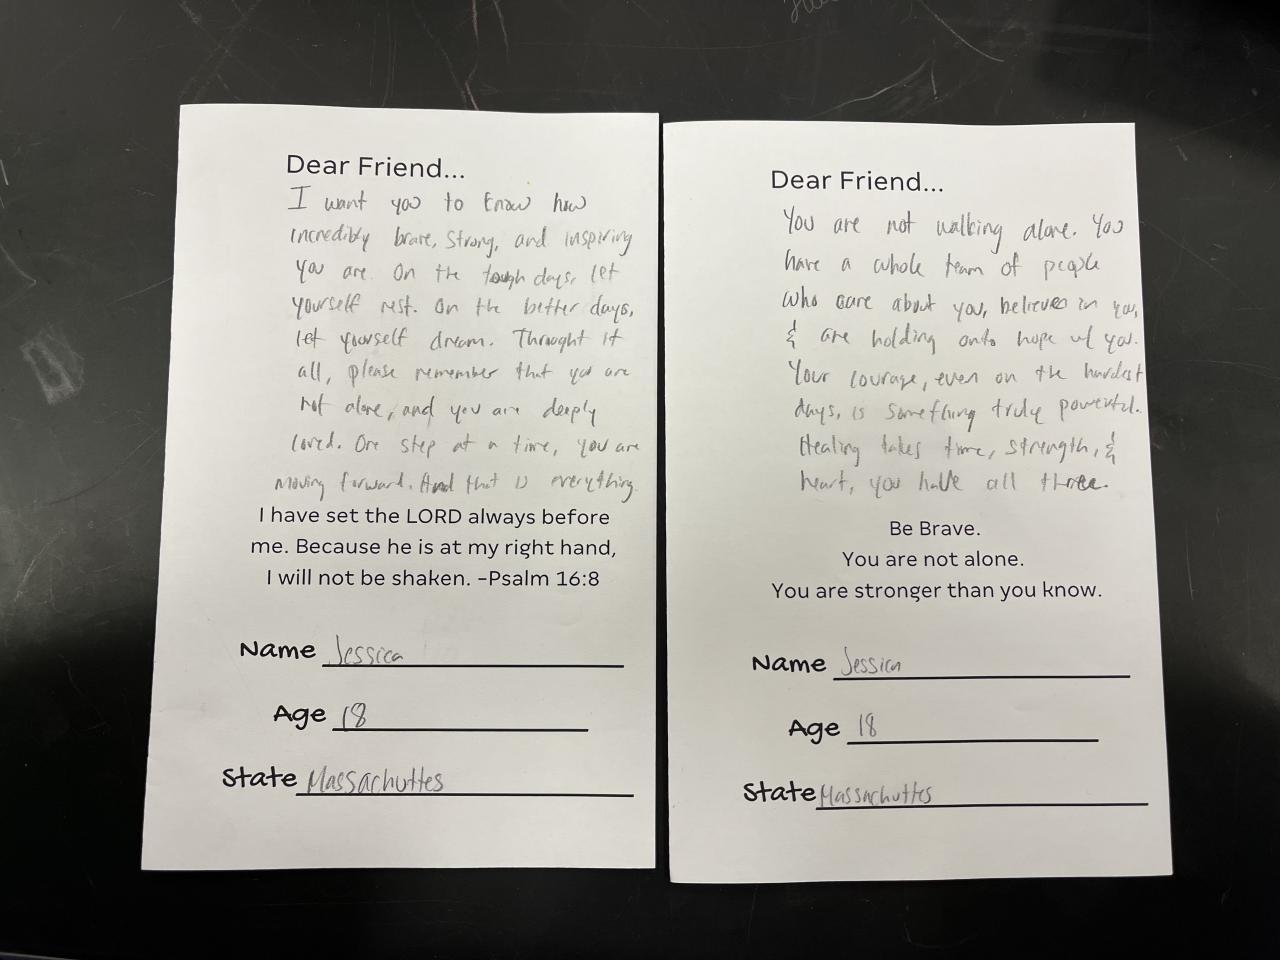 Dear Friend...
I want you to know how
incredibly brave, strong, and inspiring
you are. On the tough days, let
yourself rest. On the better days,
let yourself dream. Throught it
all, please remember that you are
not alone, and you are deeply
loved. One step at a time, you are
moving forward. And that is everything.
I have set the LORD always before
me. Because he is at my right hand,
I will not be shaken. -Psalm 16:8
Name Jessica
Age 18
State Massachuttes
Dear Friend...
You are not walking alone. You
have a whole team of people
who care about you, believes in you,
& are holding onto hope w/ you.
Your courage, even on the hardest
days, is something truly powerful.
Healing takes time, strength, &
heart, you have all three.
Be Brave.
You are not alone.
You are stronger than you know.
Name Jessica
Age 18
State Massachuttes